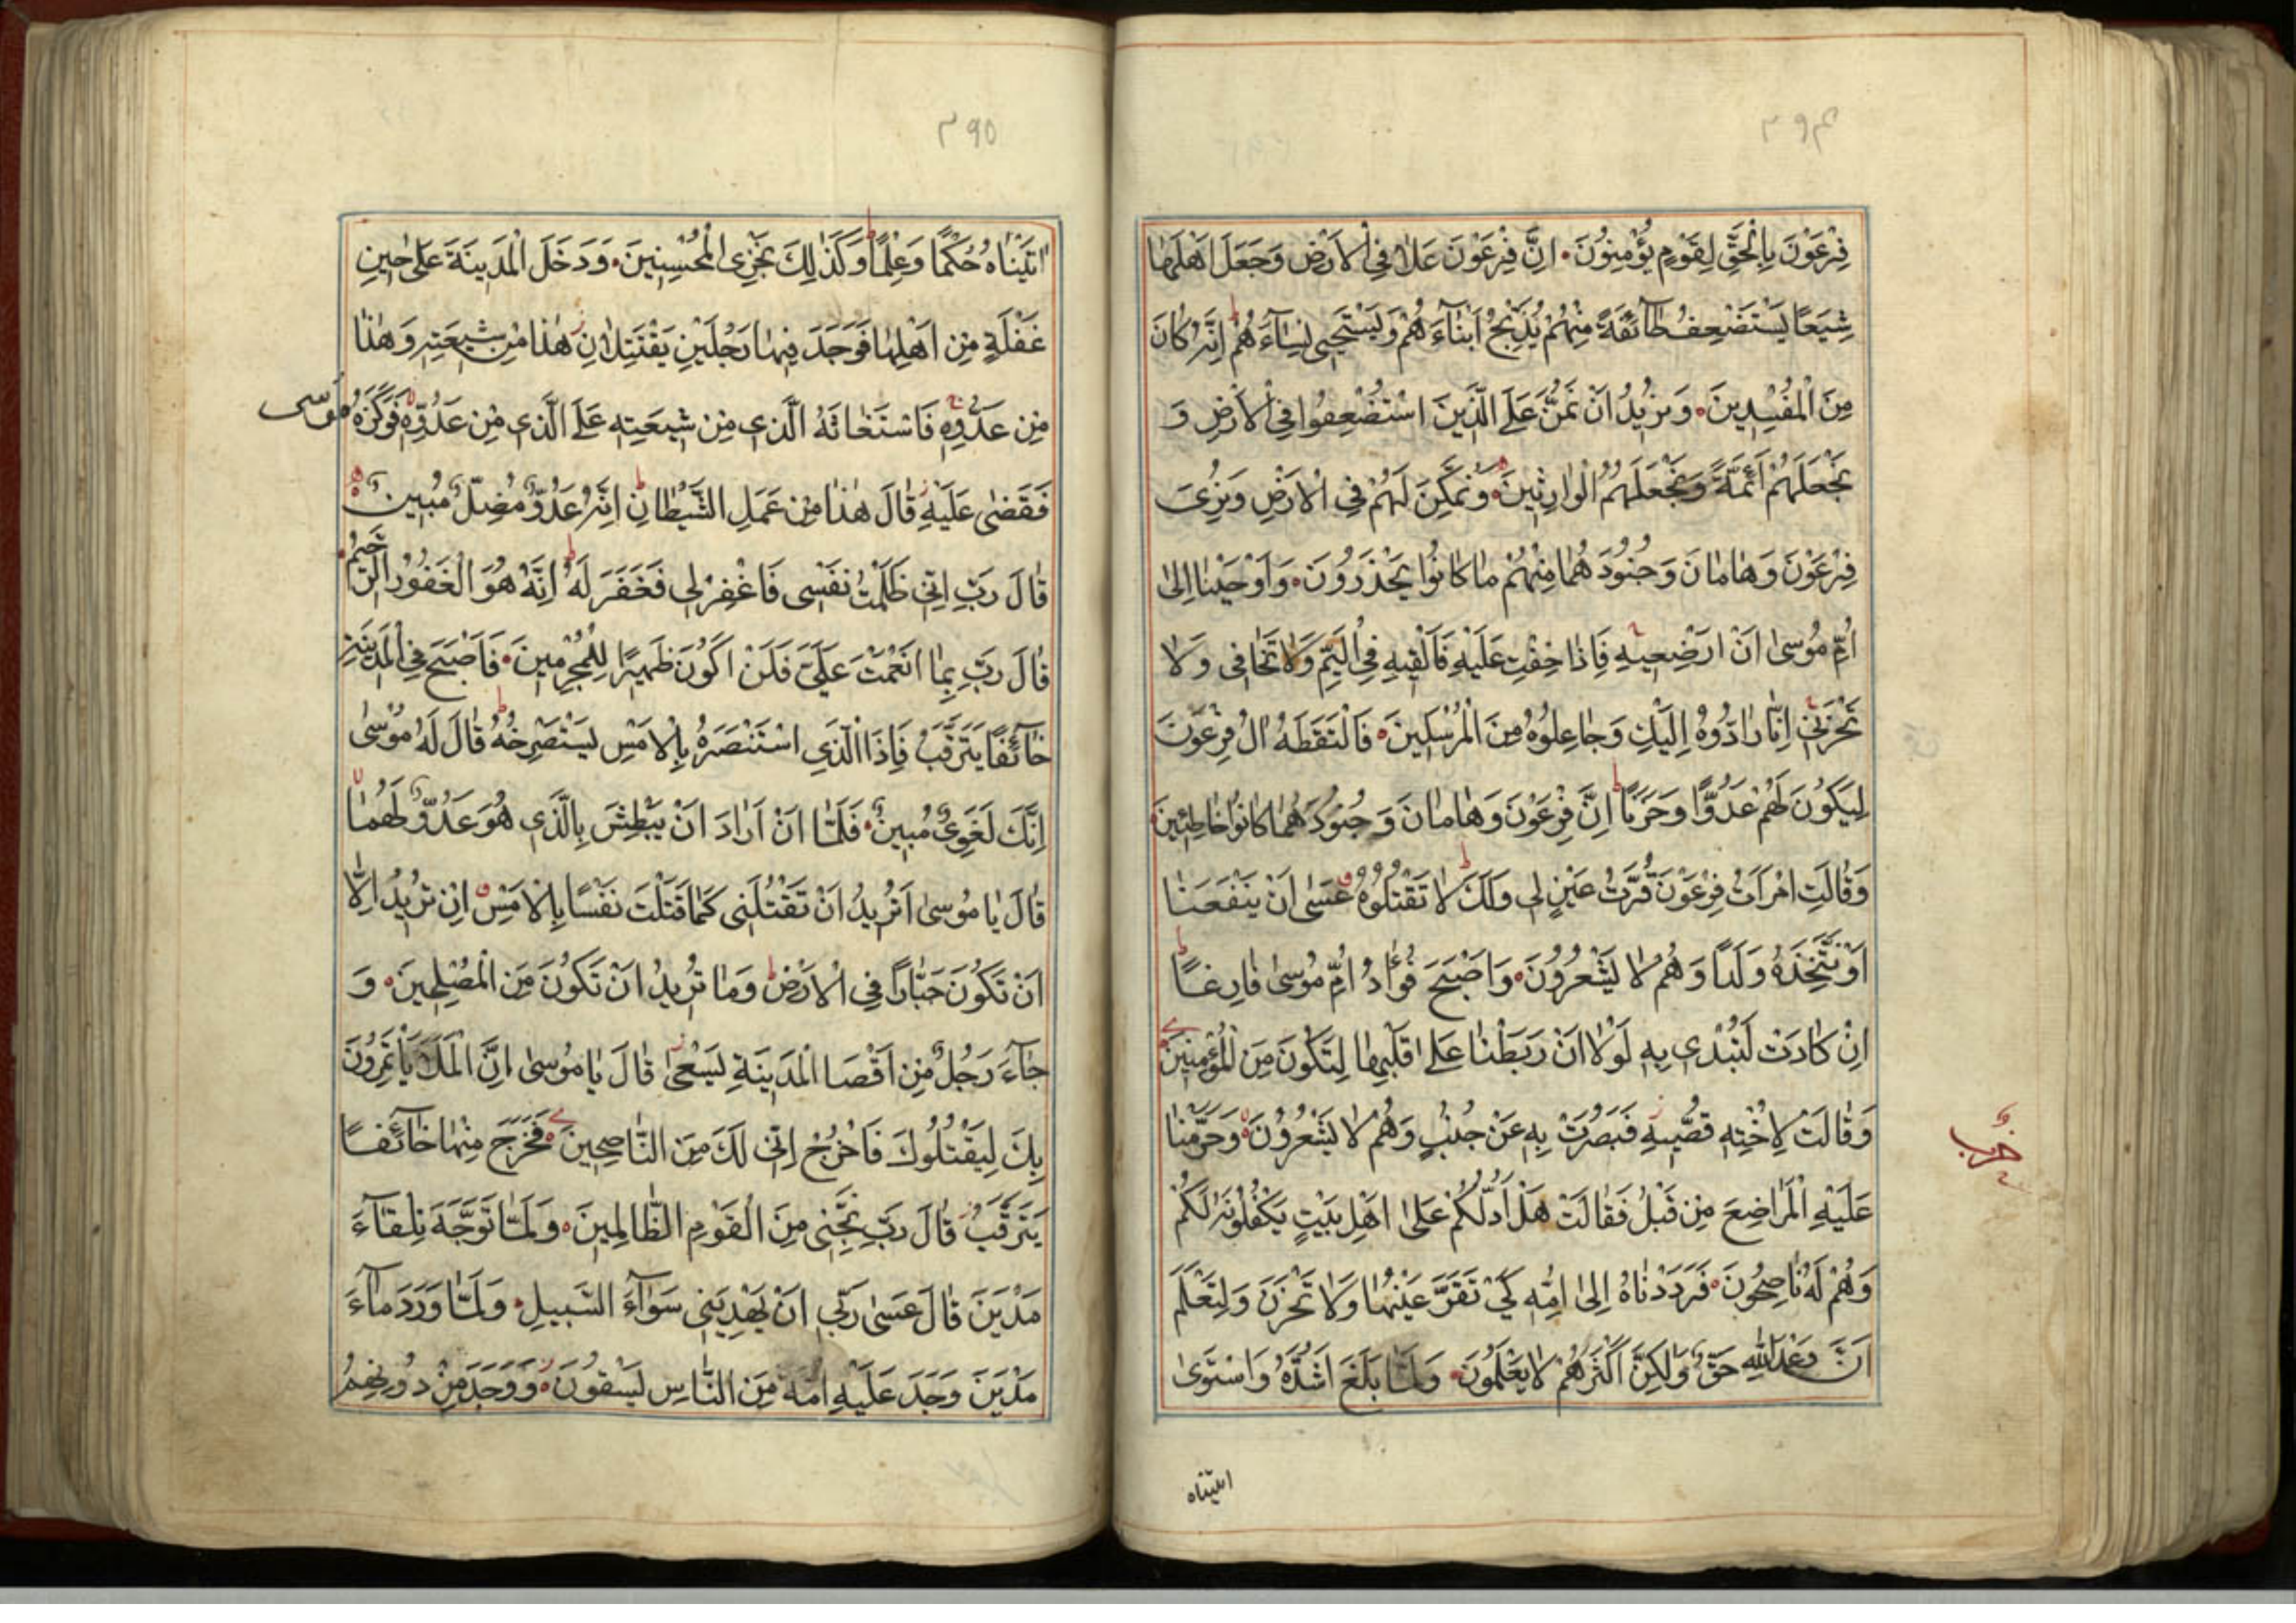 ۳۹۴
فِرْعَوْنَ بِالْحَقِّ لِقَوْمٍ يُؤْمِنُونَ۰ اِنَّ فِرْعَوْنَ عَلَا فِي الْاَرْضِ وَجَعَلَ اَهْلَهَا
شِيَعًا يَسْتَضْعِفُ طَآئِفَةً مِنْهُمْ يُذَبِّحُ اَبْنَآءَهُمْ وَيَسْتَحْيِي نِسَآءَهُمْ ط اِنَّهُ كَانَ
مِنَ الْمُفْسِدِينَ۰ وَنُرِيدُ اَنْ نَمُنَّ عَلَى الَّذِينَ اسْتُضْعِفُوا فِي الْاَرْضِ وَ
نَجْعَلَهُمْ اَئِمَّةً وَنَجْعَلَهُمُ الْوَارِثِينَ۰ وَنُمَكِّنَ لَهُمْ فِي الْاَرْضِ وَنُرِيَ
فِرْعَوْنَ وَهَامَانَ وَجُنُودَهُمَا مِنْهُمْ مَا كَانُوا يَحْذَرُونَ۰ وَاَوْحَيْنَا اِلَى
اُمِّ مُوسَى اَنْ اَرْضِعِيهِ فَاِذَا خِفْتِ عَلَيْهِ فَاَلْقِيهِ فِي الْيَمِّ وَلَا تَخَافِي وَلَا
تَحْزَنِي اِنَّا رَادُّوهُ اِلَيْكِ وَجَاعِلُوهُ مِنَ الْمُرْسَلِينَ۰ فَالْتَقَطَهُ اٰلُ فِرْعَوْنَ
لِيَكُونَ لَهُمْ عَدُوًّا وَحَزَنًا ط اِنَّ فِرْعَوْنَ وَهَامَانَ وَجُنُودَهُمَا كَانُوا خَاطِئِينَ
وَقَالَتِ امْرَاَتُ فِرْعَوْنَ قُرَّتُ عَيْنٍ لِي وَلَكَ ط لَا تَقْتُلُوهُ عَسَى اَنْ يَنْفَعَنَا
اَوْ نَتَّخِذَهُ وَلَدًا وَهُمْ لَا يَشْعُرُونَ۰ وَاَصْبَحَ فُؤَادُ اُمِّ مُوسَى فَارِغًا ط
اِنْ كَادَتْ لَتُبْدِي بِهِ لَوْلَا اَنْ رَبَطْنَا عَلَى قَلْبِهَا لِتَكُونَ مِنَ الْمُؤْمِنِينَ
وَقَالَتْ لِاُخْتِهِ قُصِّيهِ فَبَصُرَتْ بِهِ عَنْ جُنُبٍ وَهُمْ لَا يَشْعُرُونَ۰ وَحَرَّمْنَا
حزب
عَلَيْهِ الْمَرَاضِعَ مِنْ قَبْلُ فَقَالَتْ هَلْ اَدُلُّكُمْ عَلَى اَهْلِ بَيْتٍ يَكْفُلُونَهُ لَكُمْ
وَهُمْ لَهُ نَاصِحُونَ۰ فَرَدَدْنَاهُ اِلَى اُمِّهِ كَيْ تَقَرَّ عَيْنُهَا وَلَا تَحْزَنَ وَلِتَعْلَمَ
اَنَّ وَعْدَ اللّٰهِ حَقٌّ وَلَكِنَّ اَكْثَرَهُمْ لَا يَعْلَمُونَ۰ وَلَمَّا بَلَغَ اَشُدَّهُ وَاسْتَوَى
اتيناه
۳۹۵
اٰتَيْنَاهُ حُكْمًا وَعِلْمًا ط وَكَذَلِكَ نَجْزِي الْمُحْسِنِينَ۰ وَدَخَلَ الْمَدِينَةَ عَلَى حِينِ
غَفْلَةٍ مِنْ اَهْلِهَا فَوَجَدَ فِيهَا رَجُلَيْنِ يَقْتَتِلَانِ هَذَا مِنْ شِيعَتِهِ وَهَذَا
مِنْ عَدُوِّهِ فَاسْتَغَاثَهُ الَّذِي مِنْ شِيعَتِهِ عَلَى الَّذِي مِنْ عَدُوِّهِ فَوَكَزَهُ مُوسَى
فَقَضَى عَلَيْهِ قَالَ هَذَا مِنْ عَمَلِ الشَّيْطَانِ ط اِنَّهُ عَدُوٌّ مُضِلٌّ مُبِينٌ
قَالَ رَبِّ اِنِّي ظَلَمْتُ نَفْسِي فَاغْفِرْ لِي فَغَفَرَ لَهُ ط اِنَّهُ هُوَ الْغَفُورُ الرَّحِيمُ
قَالَ رَبِّ بِمَا اَنْعَمْتَ عَلَيَّ فَلَنْ اَكُونَ ظَهِيرًا لِلْمُجْرِمِينَ۰ فَاَصْبَحَ فِي الْمَدِينَةِ
خَآئِفًا يَتَرَقَّبُ فَاِذَا الَّذِي اسْتَنْصَرَهُ بِالْاَمْسِ يَسْتَصْرِخُهُ ط قَالَ لَهُ مُوسَى
اِنَّكَ لَغَوِيٌّ مُبِينٌ۰ فَلَمَّا اَنْ اَرَادَ اَنْ يَبْطِشَ بِالَّذِي هُوَ عَدُوٌّ لَهُمَا
قَالَ يَا مُوسَى اَتُرِيدُ اَنْ تَقْتُلَنِي كَمَا قَتَلْتَ نَفْسًا بِالْاَمْسِ اِنْ تُرِيدُ اِلَّا
اَنْ تَكُونَ جَبَّارًا فِي الْاَرْضِ وَمَا تُرِيدُ اَنْ تَكُونَ مِنَ الْمُصْلِحِينَ۰ وَ
جَآءَ رَجُلٌ مِنْ اَقْصَا الْمَدِينَةِ يَسْعَى قَالَ يَا مُوسَى اِنَّ الْمَلَاَ يَأْتَمِرُونَ
بِكَ لِيَقْتُلُوكَ فَاخْرُجْ اِنِّي لَكَ مِنَ النَّاصِحِينَ۰ فَخَرَجَ مِنْهَا خَآئِفًا
يَتَرَقَّبُ قَالَ رَبِّ نَجِّنِي مِنَ الْقَوْمِ الظَّالِمِينَ۰ وَلَمَّا تَوَجَّهَ تِلْقَآءَ
مَدْيَنَ قَالَ عَسَى رَبِّي اَنْ يَهْدِيَنِي سَوَآءَ السَّبِيلِ۰ وَلَمَّا وَرَدَ مَآءَ
مَدْيَنَ وَجَدَ عَلَيْهِ اُمَّةً مِنَ النَّاسِ يَسْقُونَ۰ وَوَجَدَ مِنْ دُونِهِمُ